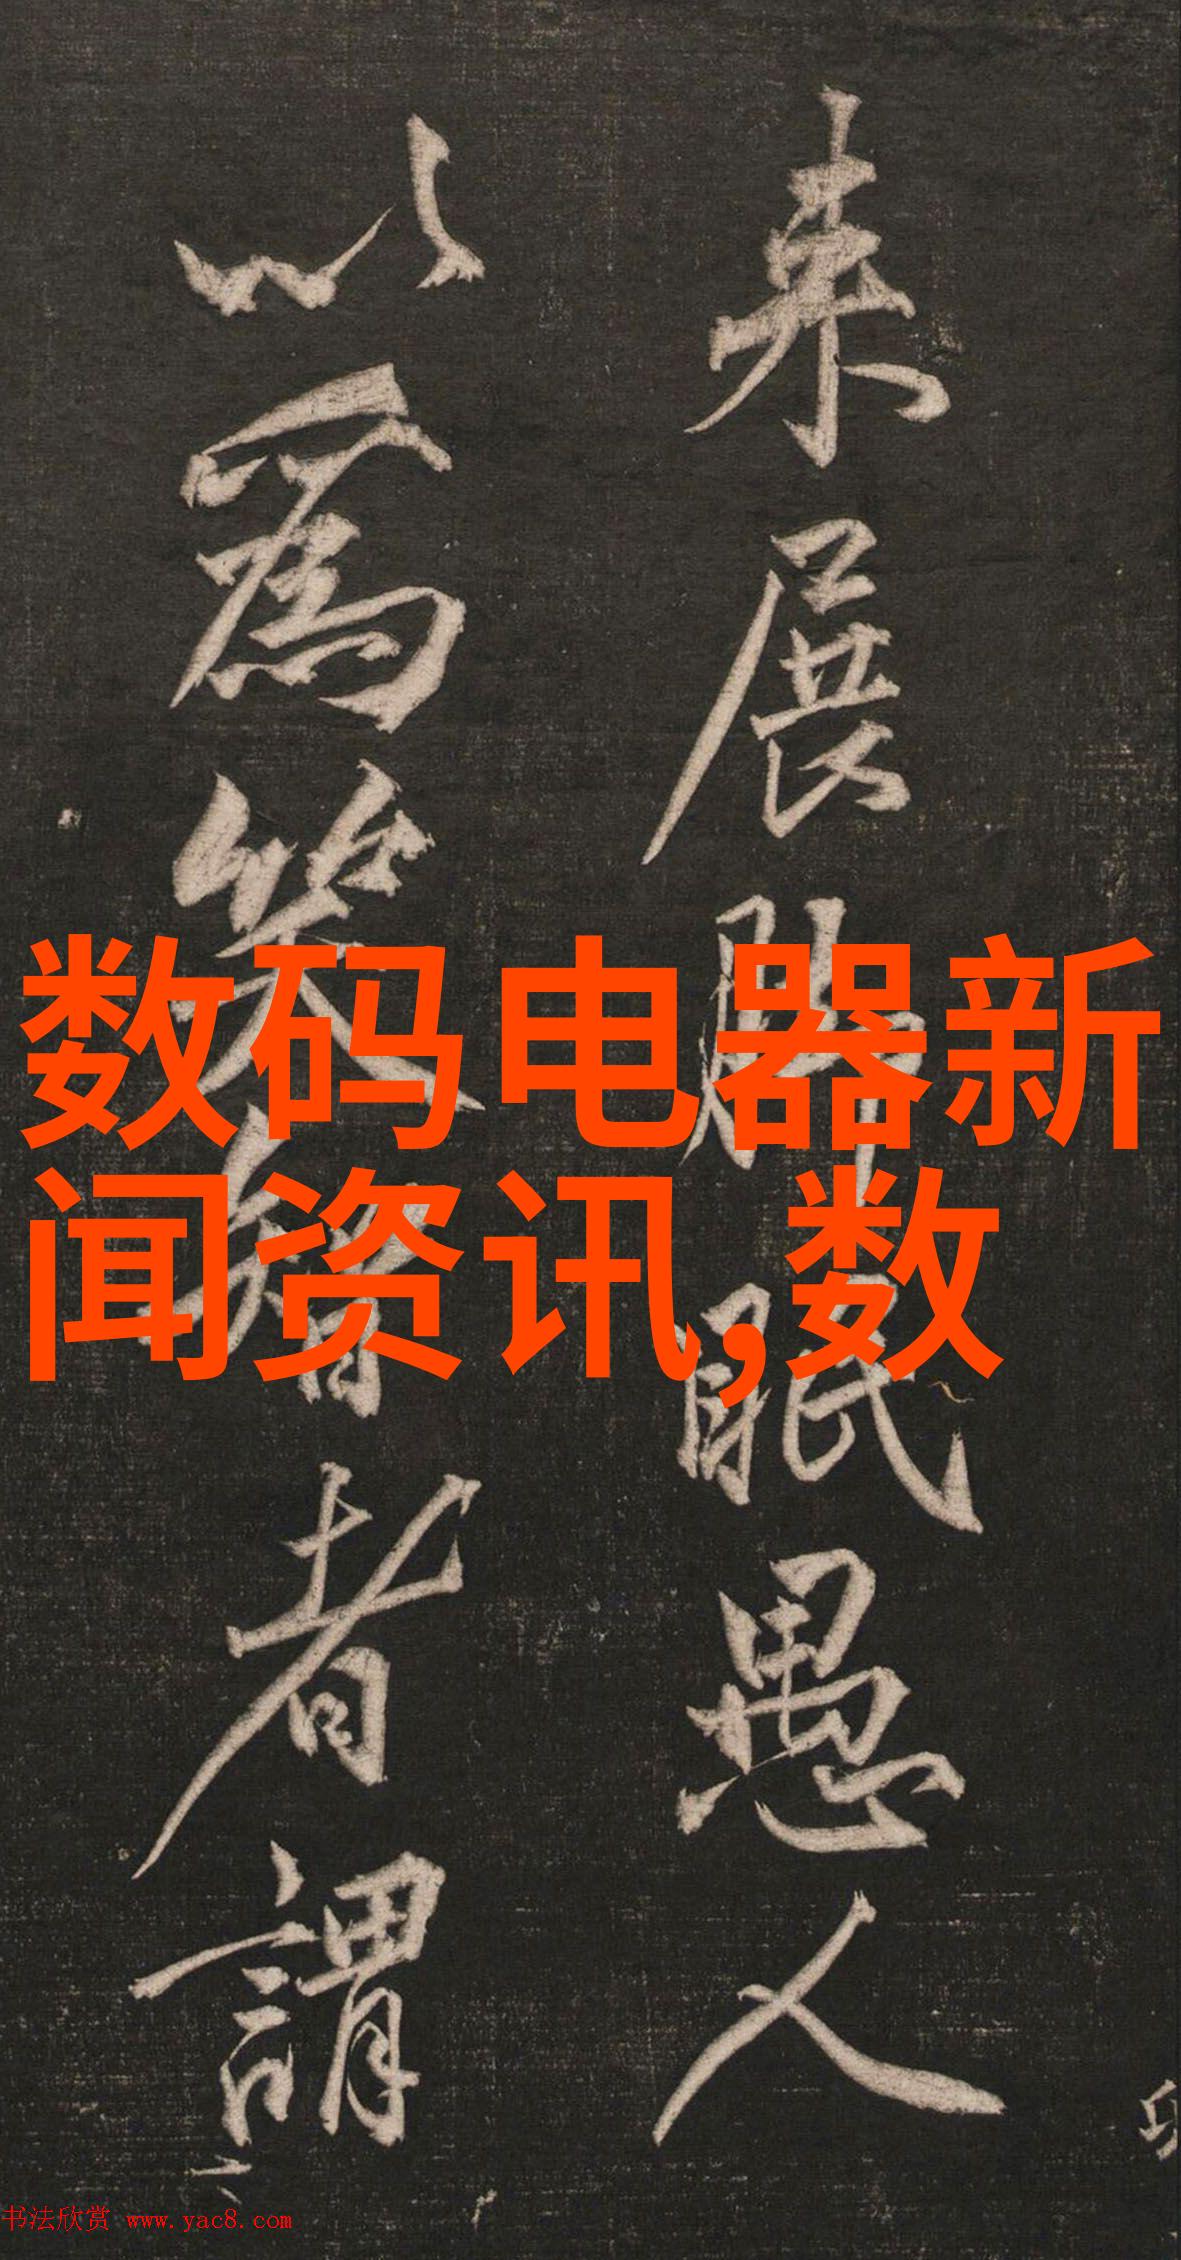 来展脚眠愚人
以為笑智者謂
数码电器新
闻资讯,数
书法欣赏 www.yac8.com